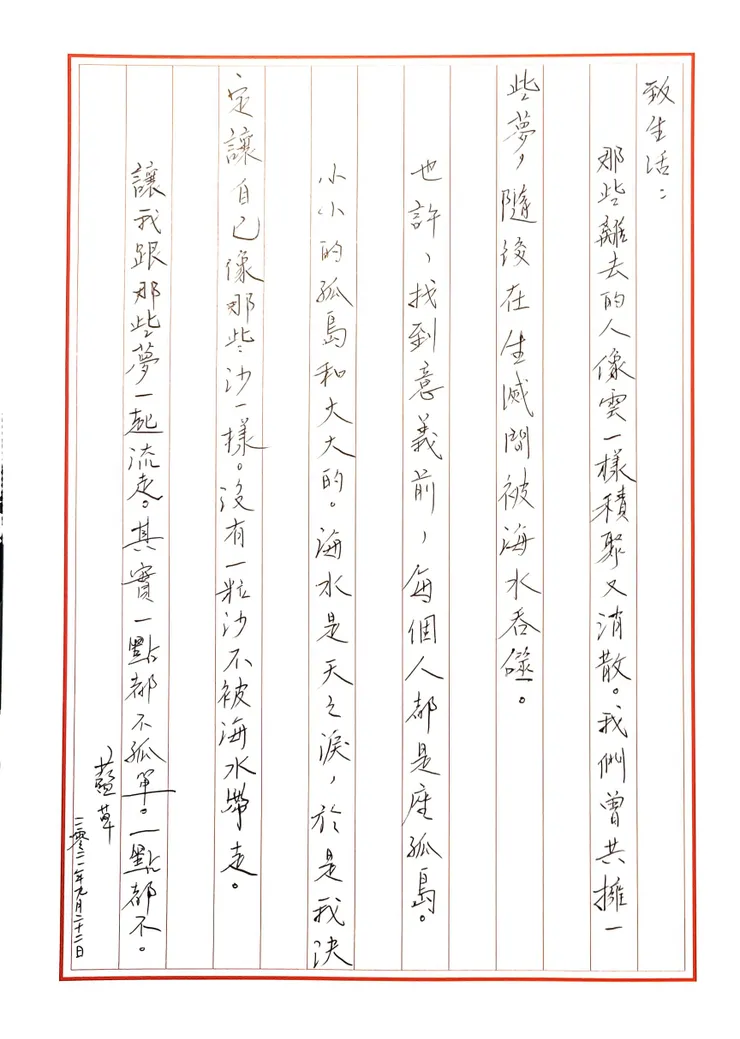 致生活：
那些離去的人像雲一樣積聚又消散。我們曾共擁一
些夢，隨後在生滅間被海水吞噬。
也許、找到意義前，每個人都是座孤島。
小小的孤島和大大的。海水是天之淚，於是我決
定讓自己像那些沙一樣。沒有一粒沙不被海水帶走。
讓我跟那些夢一起流走。其實一點都不孤單。一點都不。
藍草
二零二一年九月二十二日